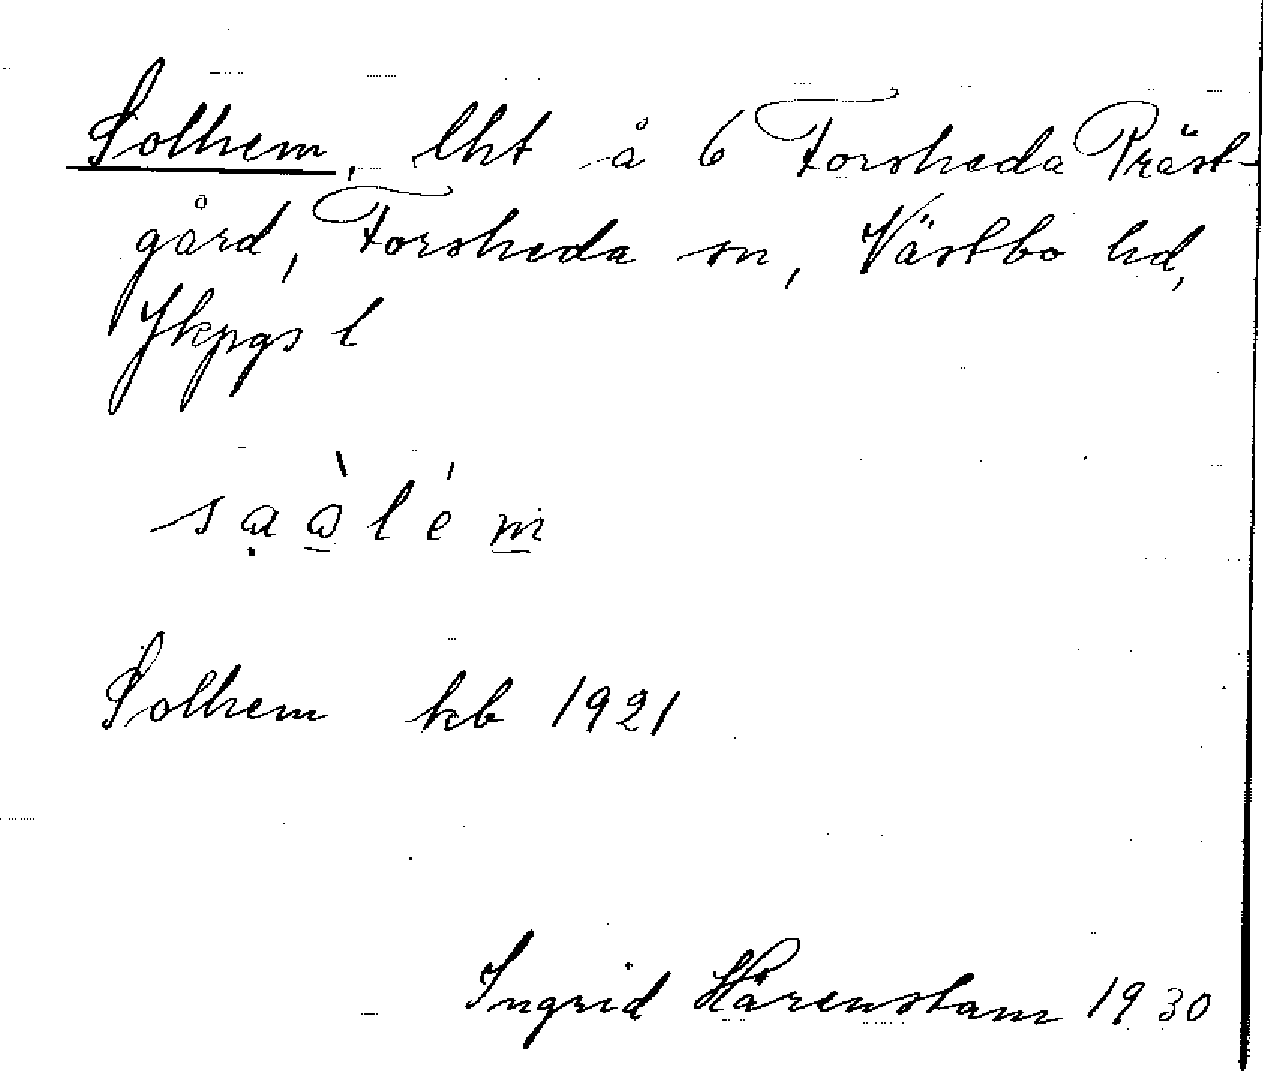 Solhem, lht å 6 Forsheda Präst-
gård, Forsheda sn, Västbo hd,
Jkpgs l
Solhem kb 1921
Ingrid Hårenstam 1930